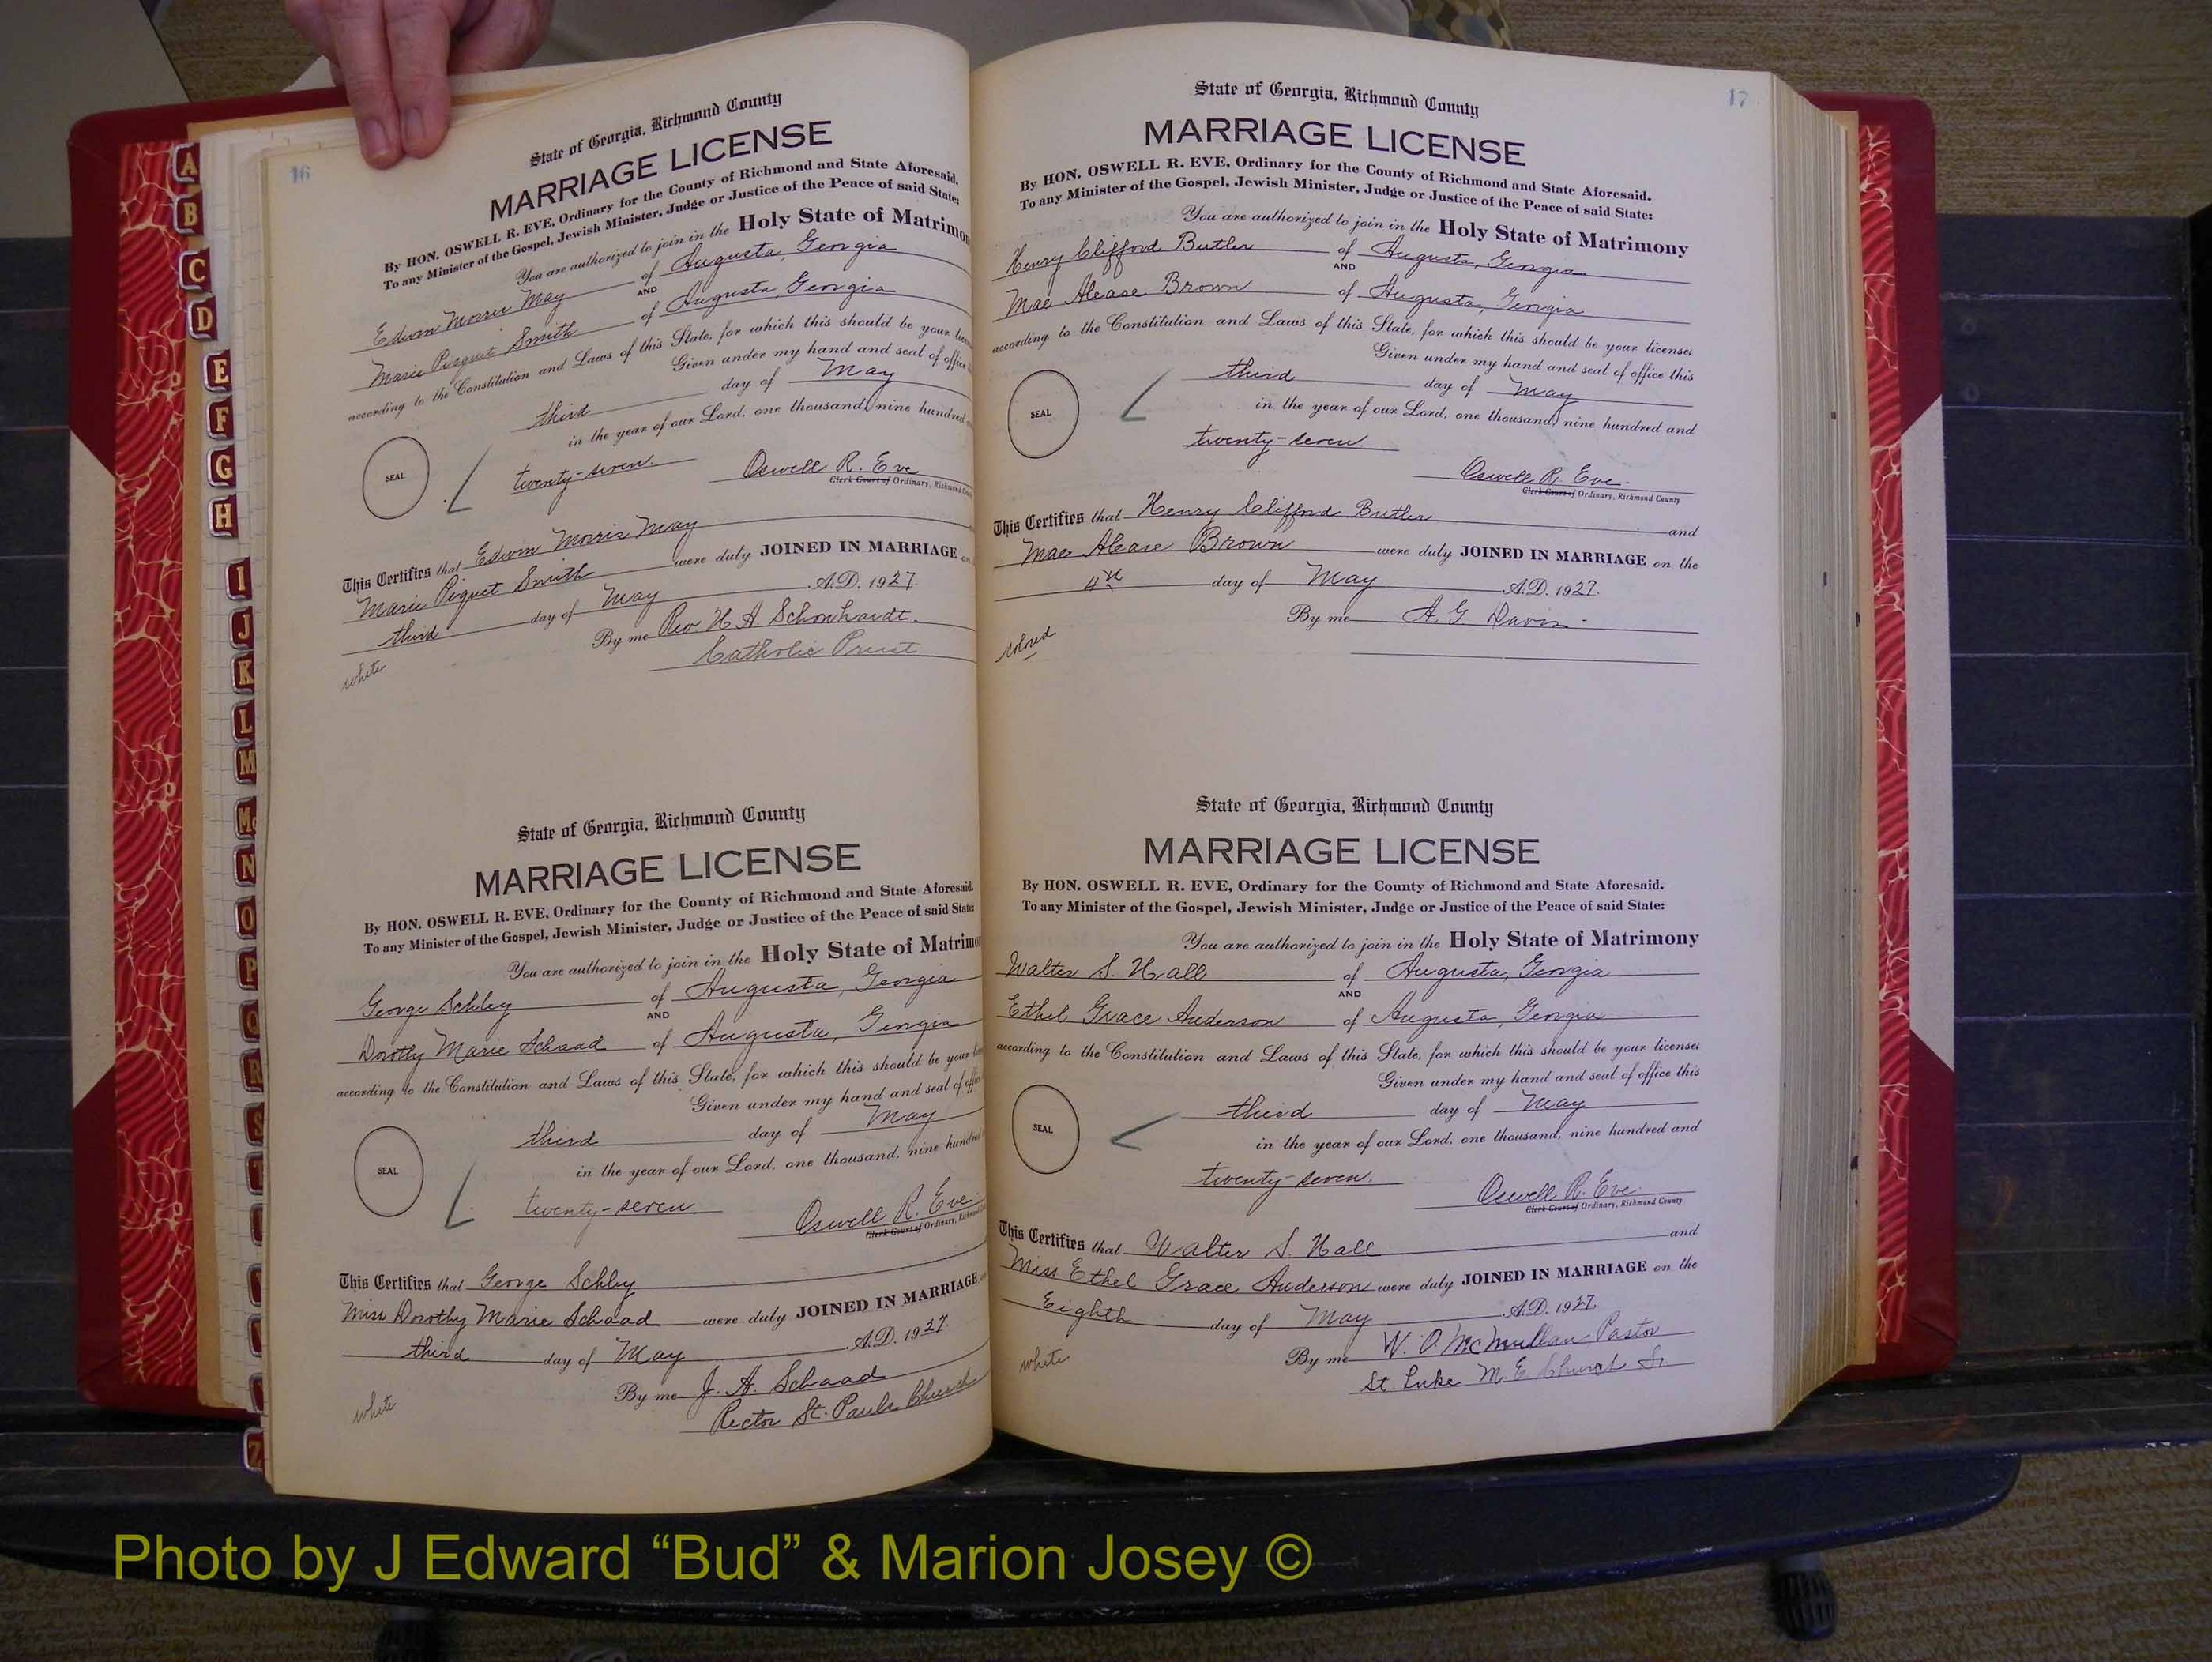 16
State of Georgia, Richmond County
MARRIAGE LICENSE
By HON. OSWELL R. EVE, Ordinary for the County of Richmond and State Aforesaid.
To any Minister of the Gospel, Jewish Minister, Judge or Justice of the Peace of said State:
You are authorized to join in the Holy State of Matrimo
Edwin Morris May of Augusta, Georgia
AND
Marie Piquet Smith of Augusta, Georgia
according to the Constitution and Laws of this State, for which this should be your
Given under my hand and seal of office
third day of May
in the year of our Lord, one thousand, nine hundred
SEAL
twenty-seven.
Oswell R. Eve
Clerk Court of Ordinary, Richmond
This Certifies that Edwin Morris May
Marie Piquet Smith were duly JOINED IN MARRIAGE
third day of May A.D. 1927.
By me Rev H A Schonhardt.
Catholic Priest
white
State of Georgia, Richmond County
MARRIAGE LICENSE
By HON. OSWELL R. EVE, Ordinary for the County of Richmond and State Aforesaid.
To any Minister of the Gospel, Jewish Minister, Judge or Justice of the Peace of said State:
You are authorized to join in the Holy State of Matrimo
George Schley of Augusta, Georgia
AND
Dorothy Marie Schaad of Augusta, Georgia
according to the Constitution and Laws of this State, for which this should be your
Given under my hand and seal of
third day of May
in the year of our Lord, one thousand, nine hundred
SEAL
twenty-seven
Oswell R. Eve.
Clerk Court of Ordinary,
This Certifies that George Schley
Miss Dorothy Marie Schaad were duly JOINED IN MARRIAGE
third day of May A.D. 1927.
By me J. A. Schaad
Rector St. Pauls Church
white
17
State of Georgia, Richmond County
MARRIAGE LICENSE
By HON. OSWELL R. EVE, Ordinary for the County of Richmond and State Aforesaid.
To any Minister of the Gospel, Jewish Minister, Judge or Justice of the Peace of said State:
You are authorized to join in the Holy State of Matrimony
Henry Clifford Butler of Augusta, Georgia
AND
Mae Alease Brown of Augusta, Georgia
according to the Constitution and Laws of this State, for which this should be your license;
Given under my hand and seal of office this
third day of May
in the year of our Lord, one thousand, nine hundred and
SEAL
twenty-seven
Oswell R. Eve.
Clerk Court of Ordinary, Richmond County
This Certifies that Henry Clifford Butler and
Mae Alease Brown were duly JOINED IN MARRIAGE on the
4th day of May A.D. 1927.
By me A. G Davis
colored
State of Georgia, Richmond County
MARRIAGE LICENSE
By HON. OSWELL R. EVE, Ordinary for the County of Richmond and State Aforesaid.
To any Minister of the Gospel, Jewish Minister, Judge or Justice of the Peace of said State:
You are authorized to join in the Holy State of Matrimony
Walter S. Hall of Augusta, Georgia
AND
Ethel Grace Anderson of Augusta, Georgia
according to the Constitution and Laws of this State, for which this should be your license;
Given under my hand and seal of office this
third day of May
in the year of our Lord, one thousand, nine hundred and
SEAL
twenty-seven.
Oswell R. Eve.
Clerk Court of Ordinary, Richmond County
This Certifies that Walter S. Hall and
Miss Ethel Grace Anderson were duly JOINED IN MARRIAGE on the
Eighth day of May A.D. 1927.
By me W. O. McMullan-Pastor
St. Luke M. E. Church
white
A
B
C
D
E
F
G
H
I
J
K
L
M
Mc
N
O
P
Q
R
S
T
Z
Photo by J Edward “Bud” & Marion Josey ©